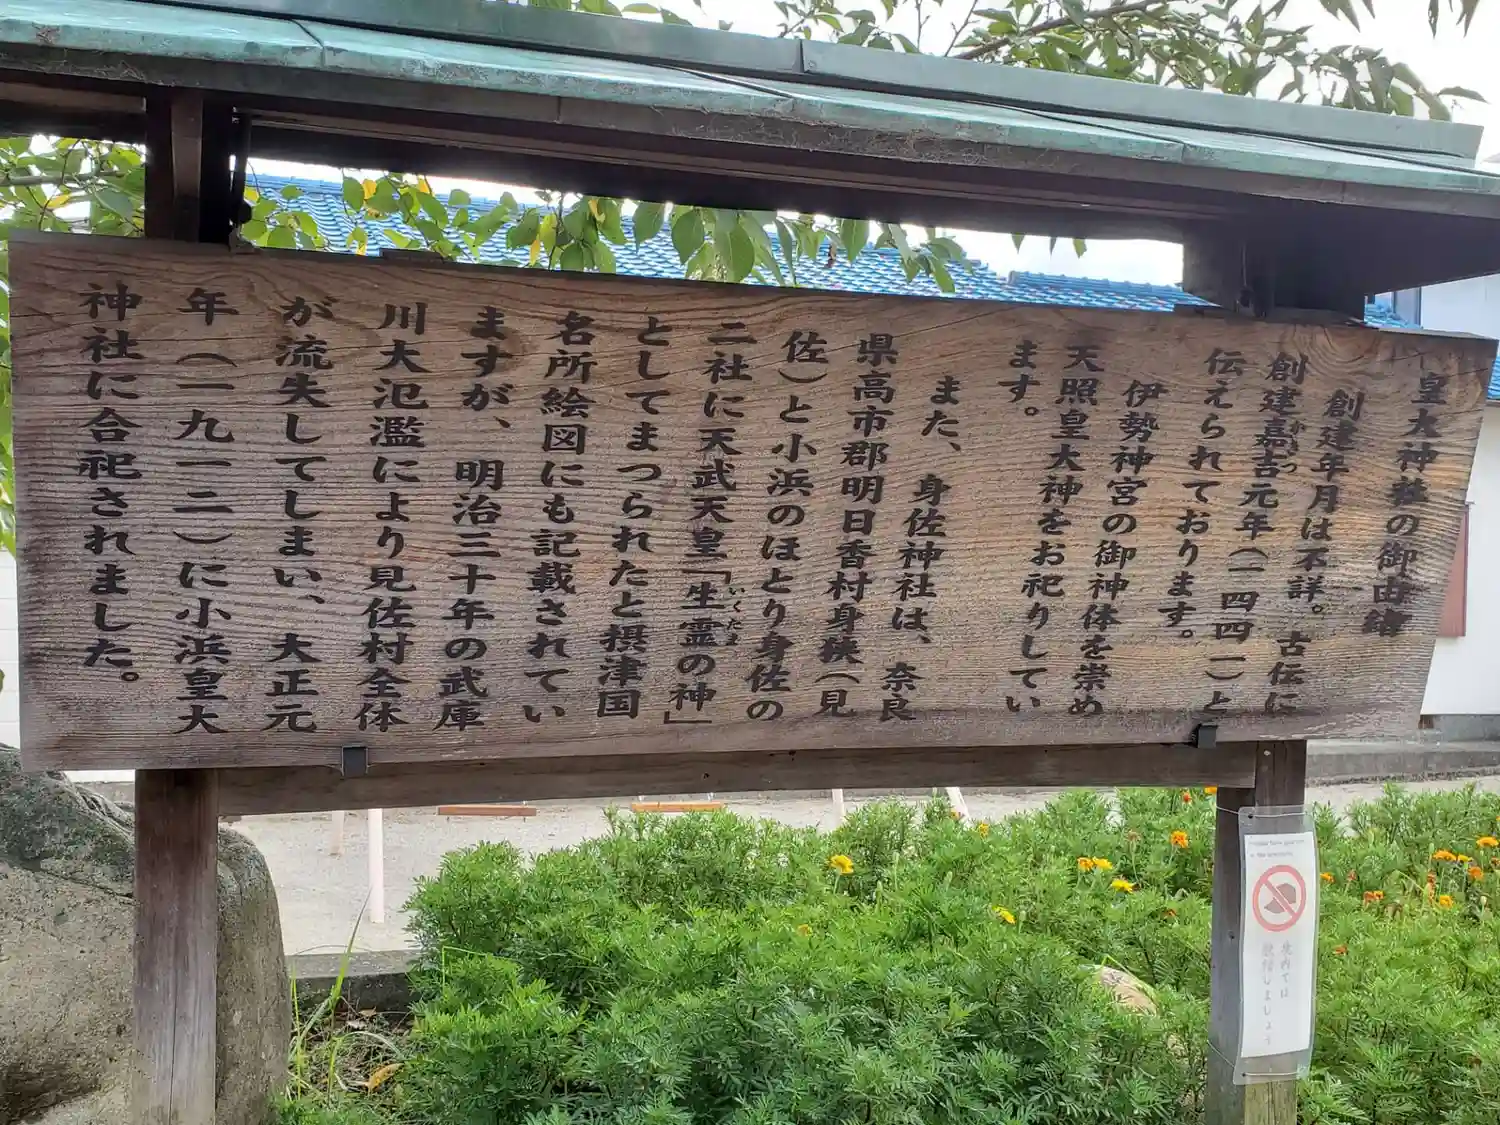 皇大神社の御由緒
創建年月は不詳。古伝に
創建嘉吉元年(一四四一)と
かきつ
伝えられております。
伊勢神宮の御神体を崇め
天照皇大神をお祀りしてい
ます。
また、身佐神社は、奈良
県高市郡明日香村身狭(見
佐)と小浜のほとり身佐の
二社に天武天皇「生霊の神」
いくたま
としてまつられたと摂津国
名所絵図にも記載されてい
ますが、明治三十年の武庫
川大氾濫により見佐村全体
が流失してしまい、大正元
年(一九一二)に小浜皇大
神社に合祀されました。
境内では
脱帽しましょう